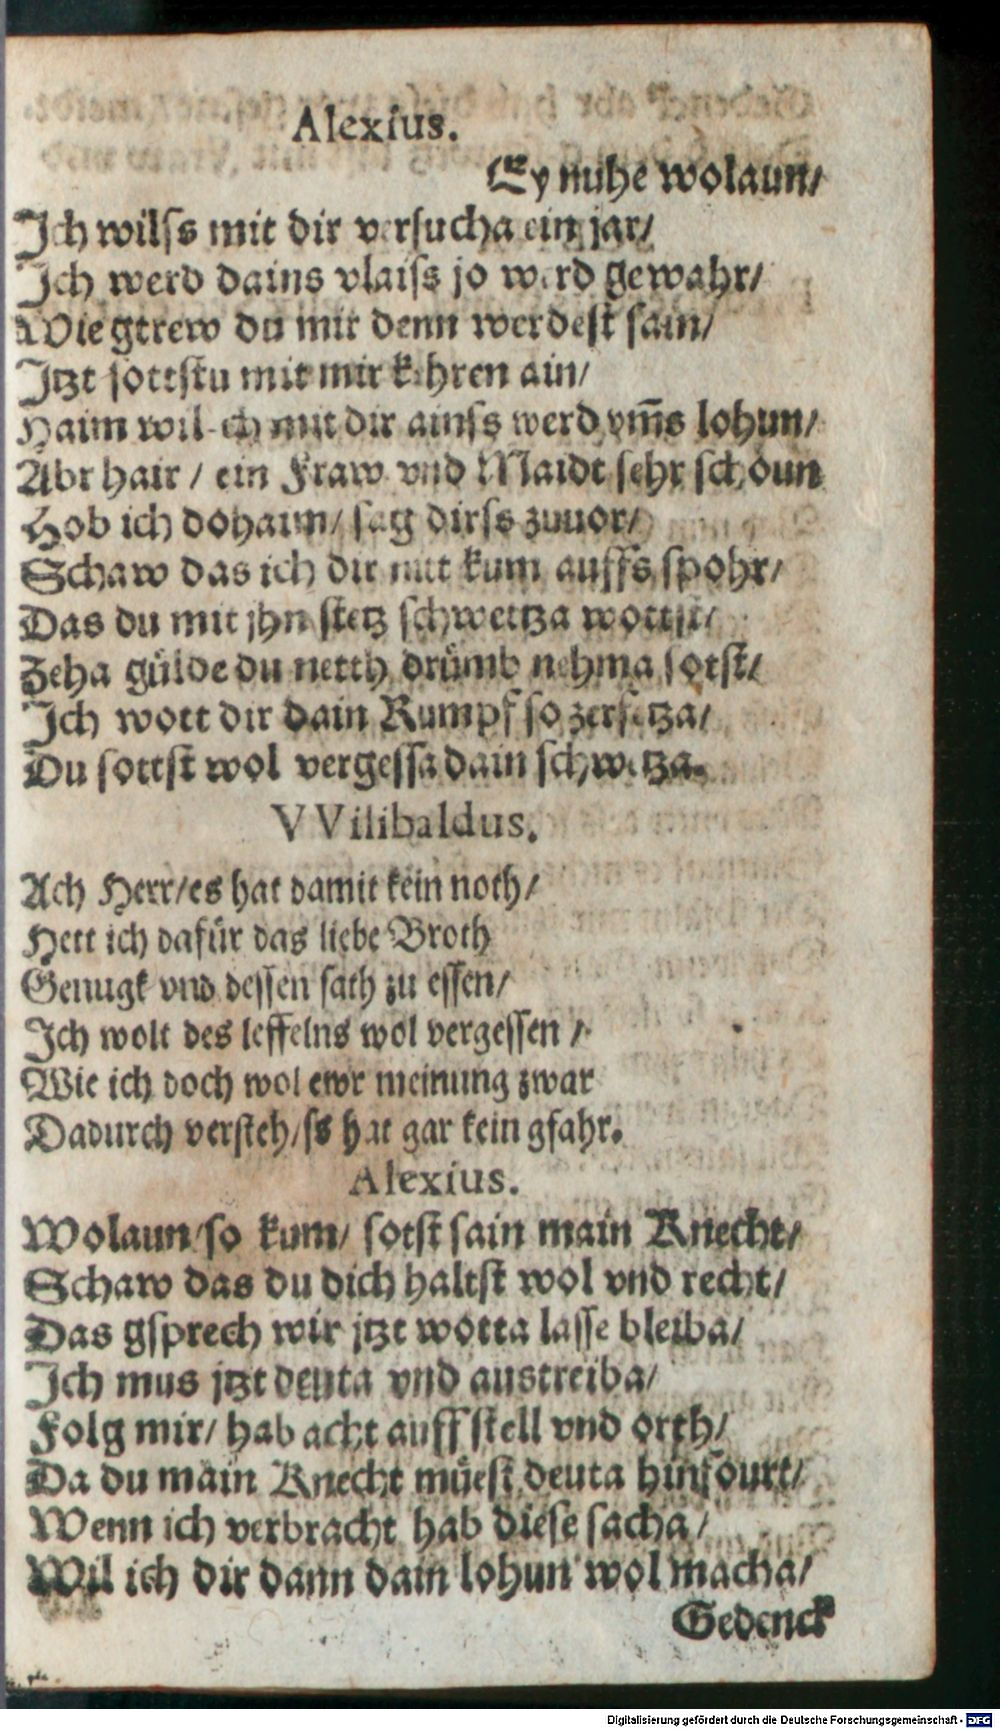 Alexius.
Ey nuhe wolaun/
Ich wilss mit dir versucha ein jar/
Ich werd dains vlaiss jo werd gewahr/
Wie gtrew du mir denn werdest sain/
Itzt sottstu mit mir kehren ain/
Haim wil-ich mit dir ainss werd vm̃s lohun/
Abr hair / ein Fraw vnd Maidt sehr schoun
Hob ich dohaim/ sag dirss zuuor/
Schaw das ich dir nit kum auffs spohr/
Das du mit jhn stetz schwettza wottst/
Zeha gülde du netth drümb nehma sotst/
Ich wott dir dain Rumpf so zerfetza/
Du sottst wol vergessa dain schwetza.
VVilibaldus.
Ach Herr/es hat damit kein noth/
Hett ich dafür das liebe Broth
Genugk vnd dessen sath zu essen/
Ich wolt des leffelns wol vergessen /
Wie ich doch wol ewr meinung zwar
Dadurch versteh/ss hat gar kein gfahr.
Alexius.
Wolaun/so kum/ sotst sain main Knecht/
Schaw das du dich haltst wol vnd recht/
Das gsprech wir jtzt wotta lasse bleiba/
Ich mus jtzt deuta vnd austreiba/
Folg mir/ hab acht auff stell vnd orth/
Da du main Knecht müest deuta hinfourt/
Wenn ich verbracht hab diese sacha/
Wil ich dir dann dain lohun wol macha/
Gedenck
Digitalisierung gefördert durch die Deutsche Forschungsgemeinschaft - DFG